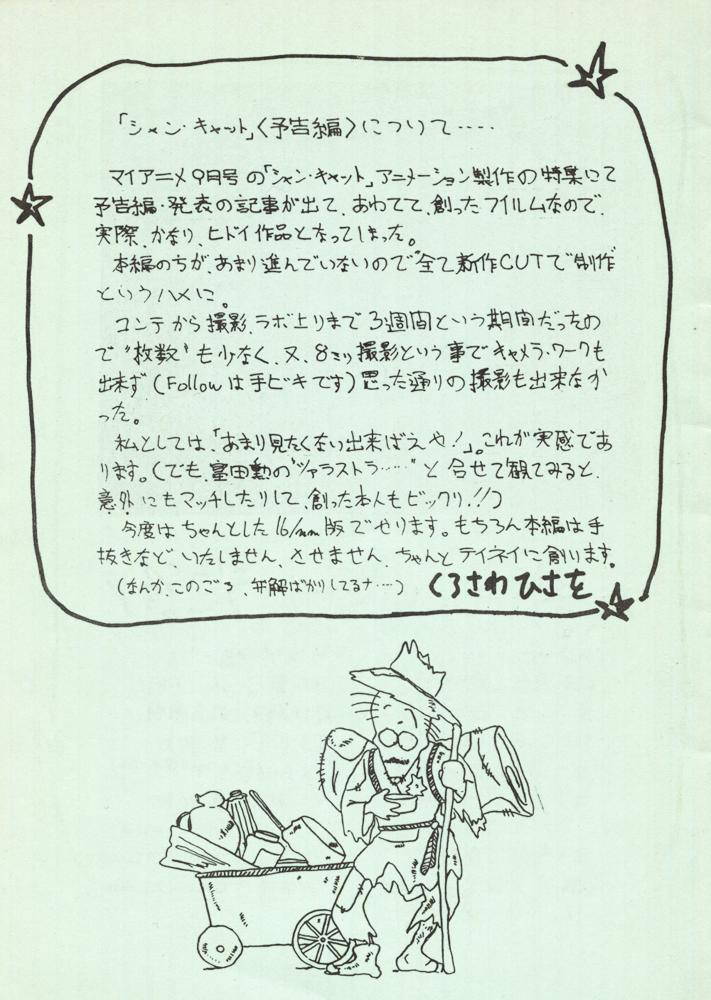 「シャン・キャット」〈予告編〉について‥‥‥
マイアニメ9月号の「シャン・キャット」アニメーション製作の特集にて
予告編・発表の記事が出て、あわてて、創ったフイルムなので、
実際、かなり、ヒドイ作品となってしまった。
本編のちが、あまり進んでいないので"全て新作CUTで"制作
というハメに。
コンテから撮影、ラボ上りまで3週間という期間だったの
で"枚数"も少なく、又、8ミリ撮影という事でキャメラ・ワークも
出来ず(Followは手ビキです)思った通りの撮影も出来なか
った。
私としては、「あまり見たくない出来ばえや!」。これが実感であ
ります。(でも、冨田勲の"ツァラストラ‥‥‥"と合せて観てみると、
意外にもマッチしたりして、創った本人もビックリ!!)
今度はちゃんとした16/mm版でやります。もちろん本編は手
抜きなど、いたしません、させません、ちゃんとテイネイに創ります。
(なんか、このごろ、弁解ばかりしてるナ‥‥) くろさわひさを